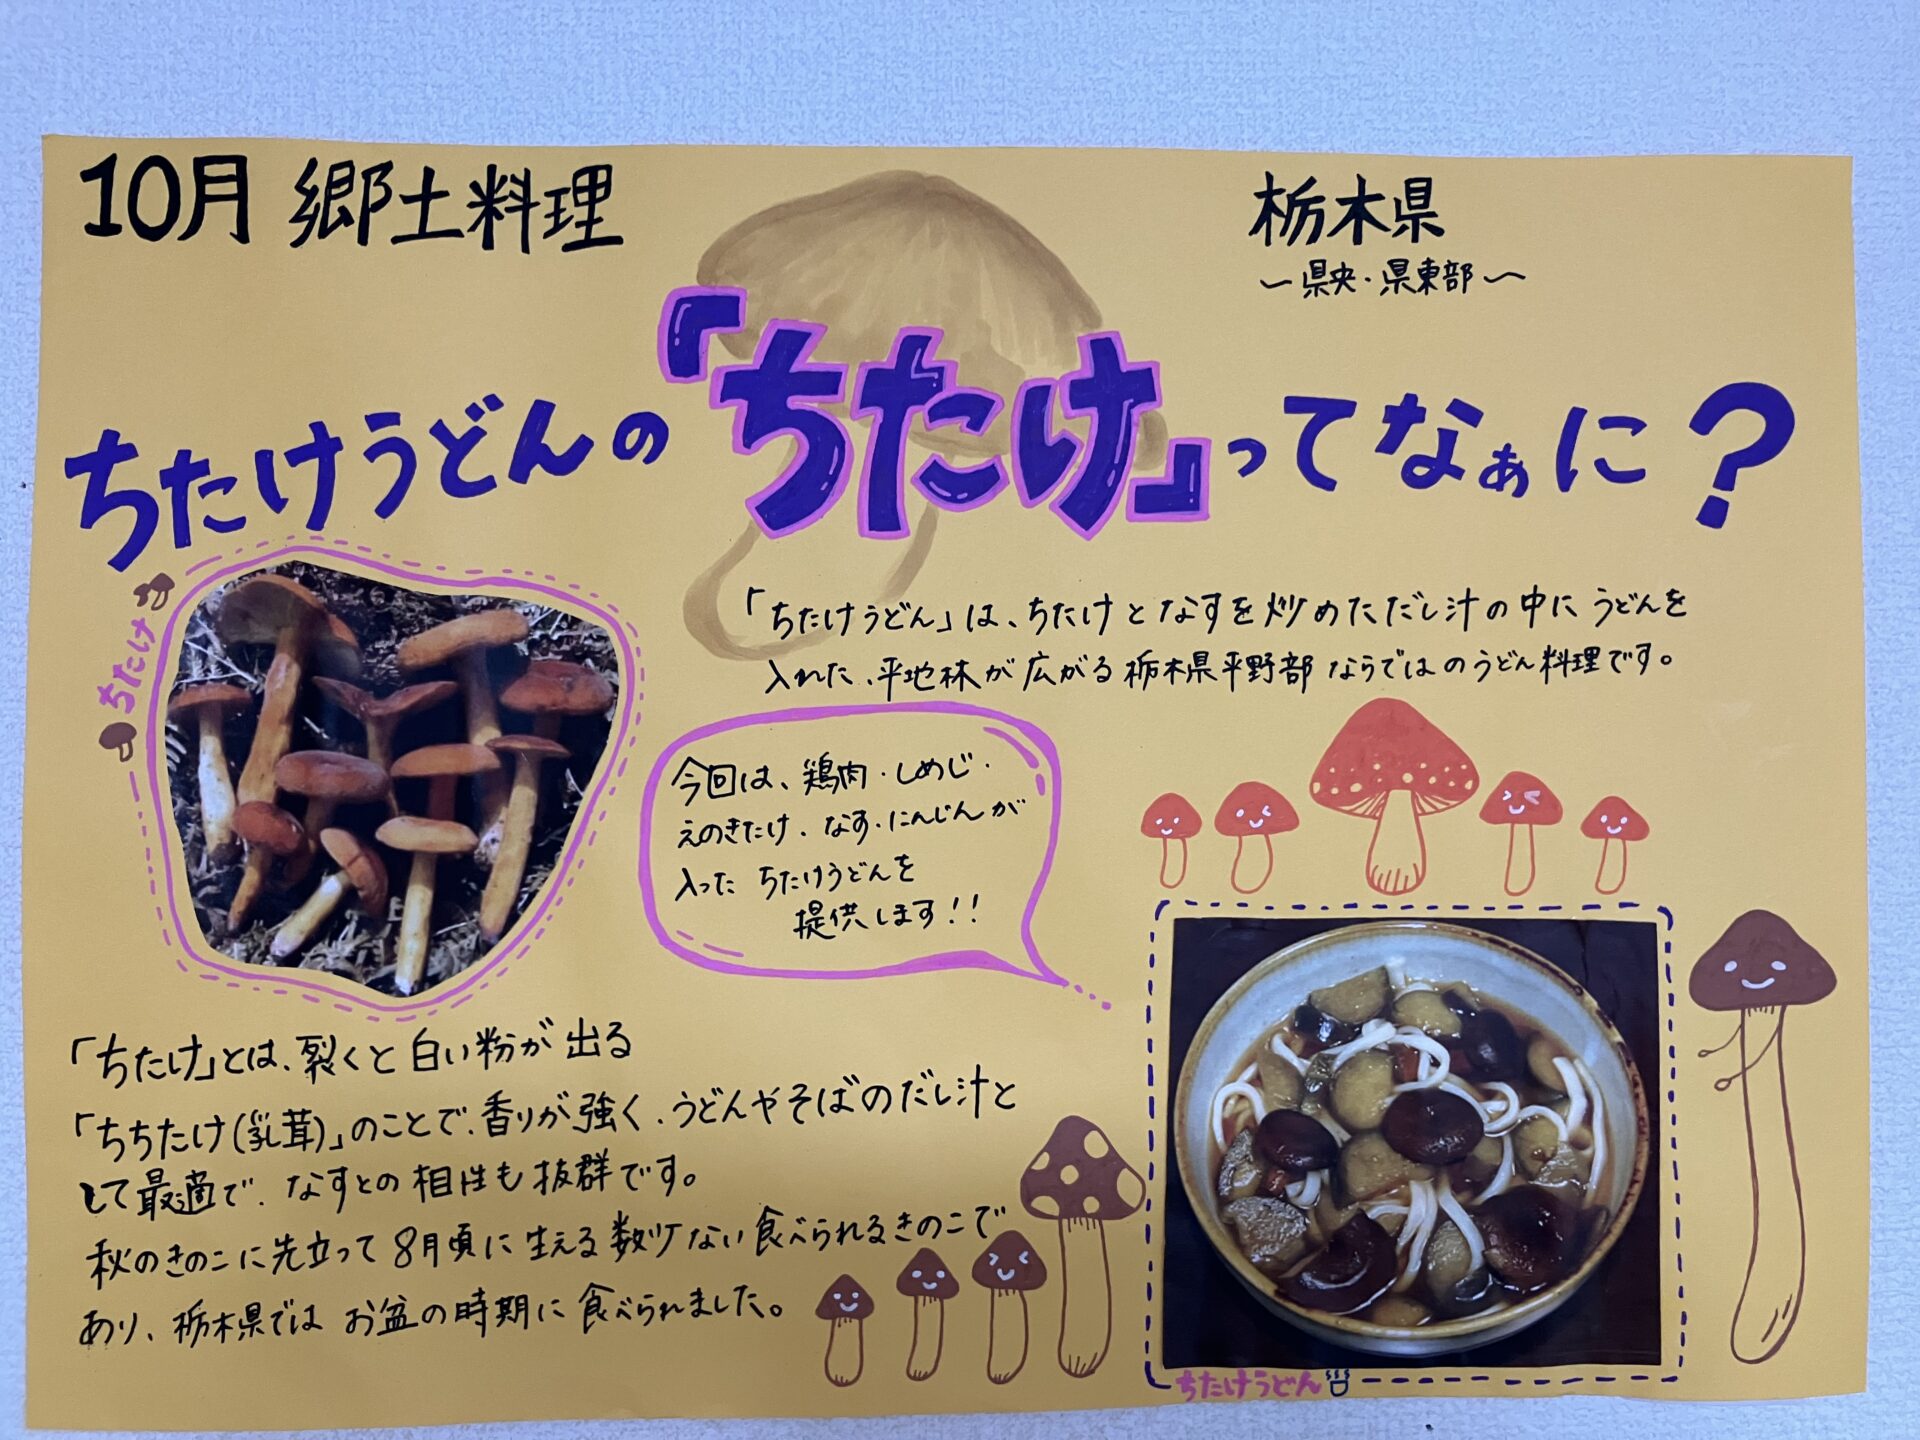 10月 郷土料理
栃木県
〜県央・県東部〜
ちたけうどんの「ちたけ」ってなぁに?
ちたけ
「ちたけうどん」は、ちたけとなすを炒めただし汁の中にうどんを
入れた、平地林が広がる栃木県平野部ならではのうどん料理です。
今回は、鶏肉・しめじ・
えのきたけ・なす・にんじんが
入った ちたけうどんを
提供します!!
「ちたけ」とは、裂くと白い粉が出る
「ちちたけ(乳茸)」のことで、香りが強く、うどんやそばのだし汁と
して最適で、なすとの相性も抜群です。
秋のきのこに先立って8月頃に生える数少ない食べられるきのこで
あり、栃木県ではお盆の時期に食べられました。
ちたけうどん